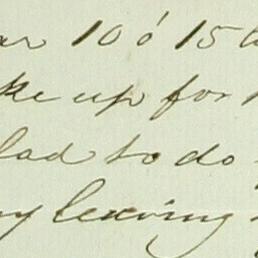 ar 10 o' 15
ke up for
lad to do
y leaving